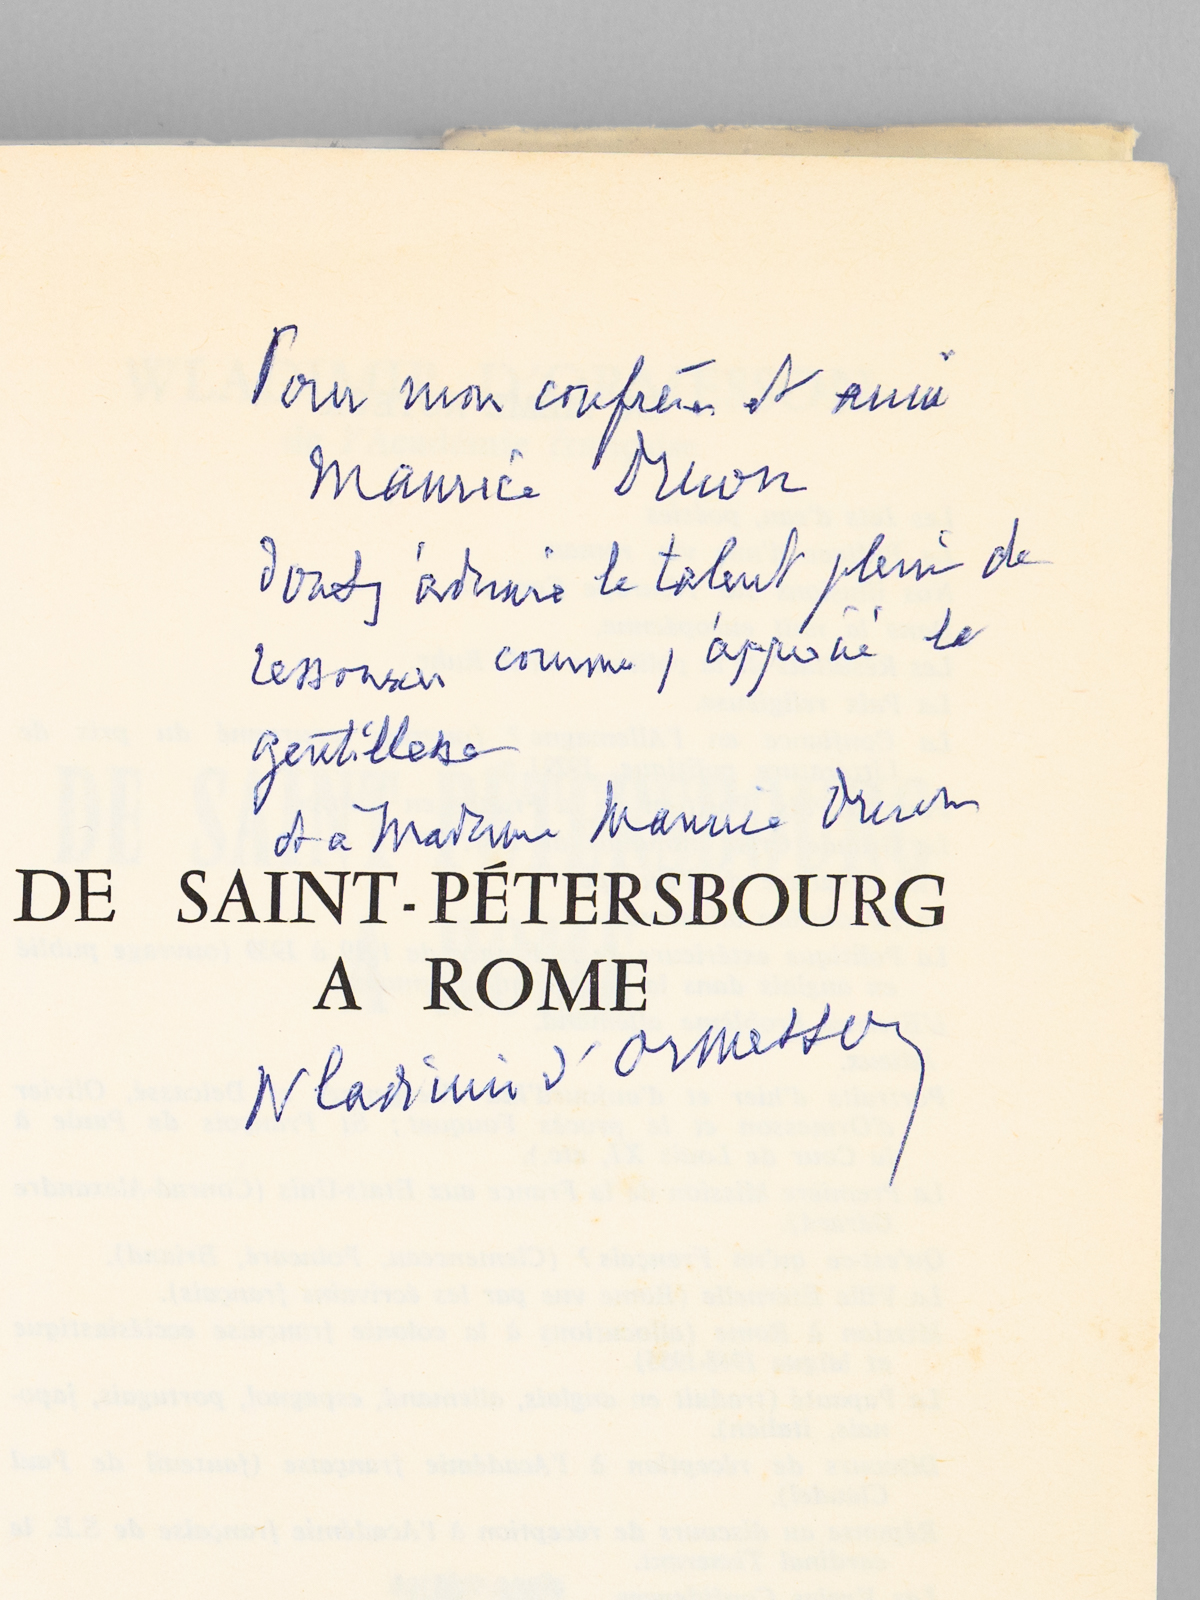 Pour mon confrère et ami
Maurice Druon
dont j'admire le talent plein de
ressources comme j'apprécie la
gentillesse
et à Madame Maurice Druon
DE SAINT-PÉTERSBOURG
A ROME
Wladimir d'Ormesson